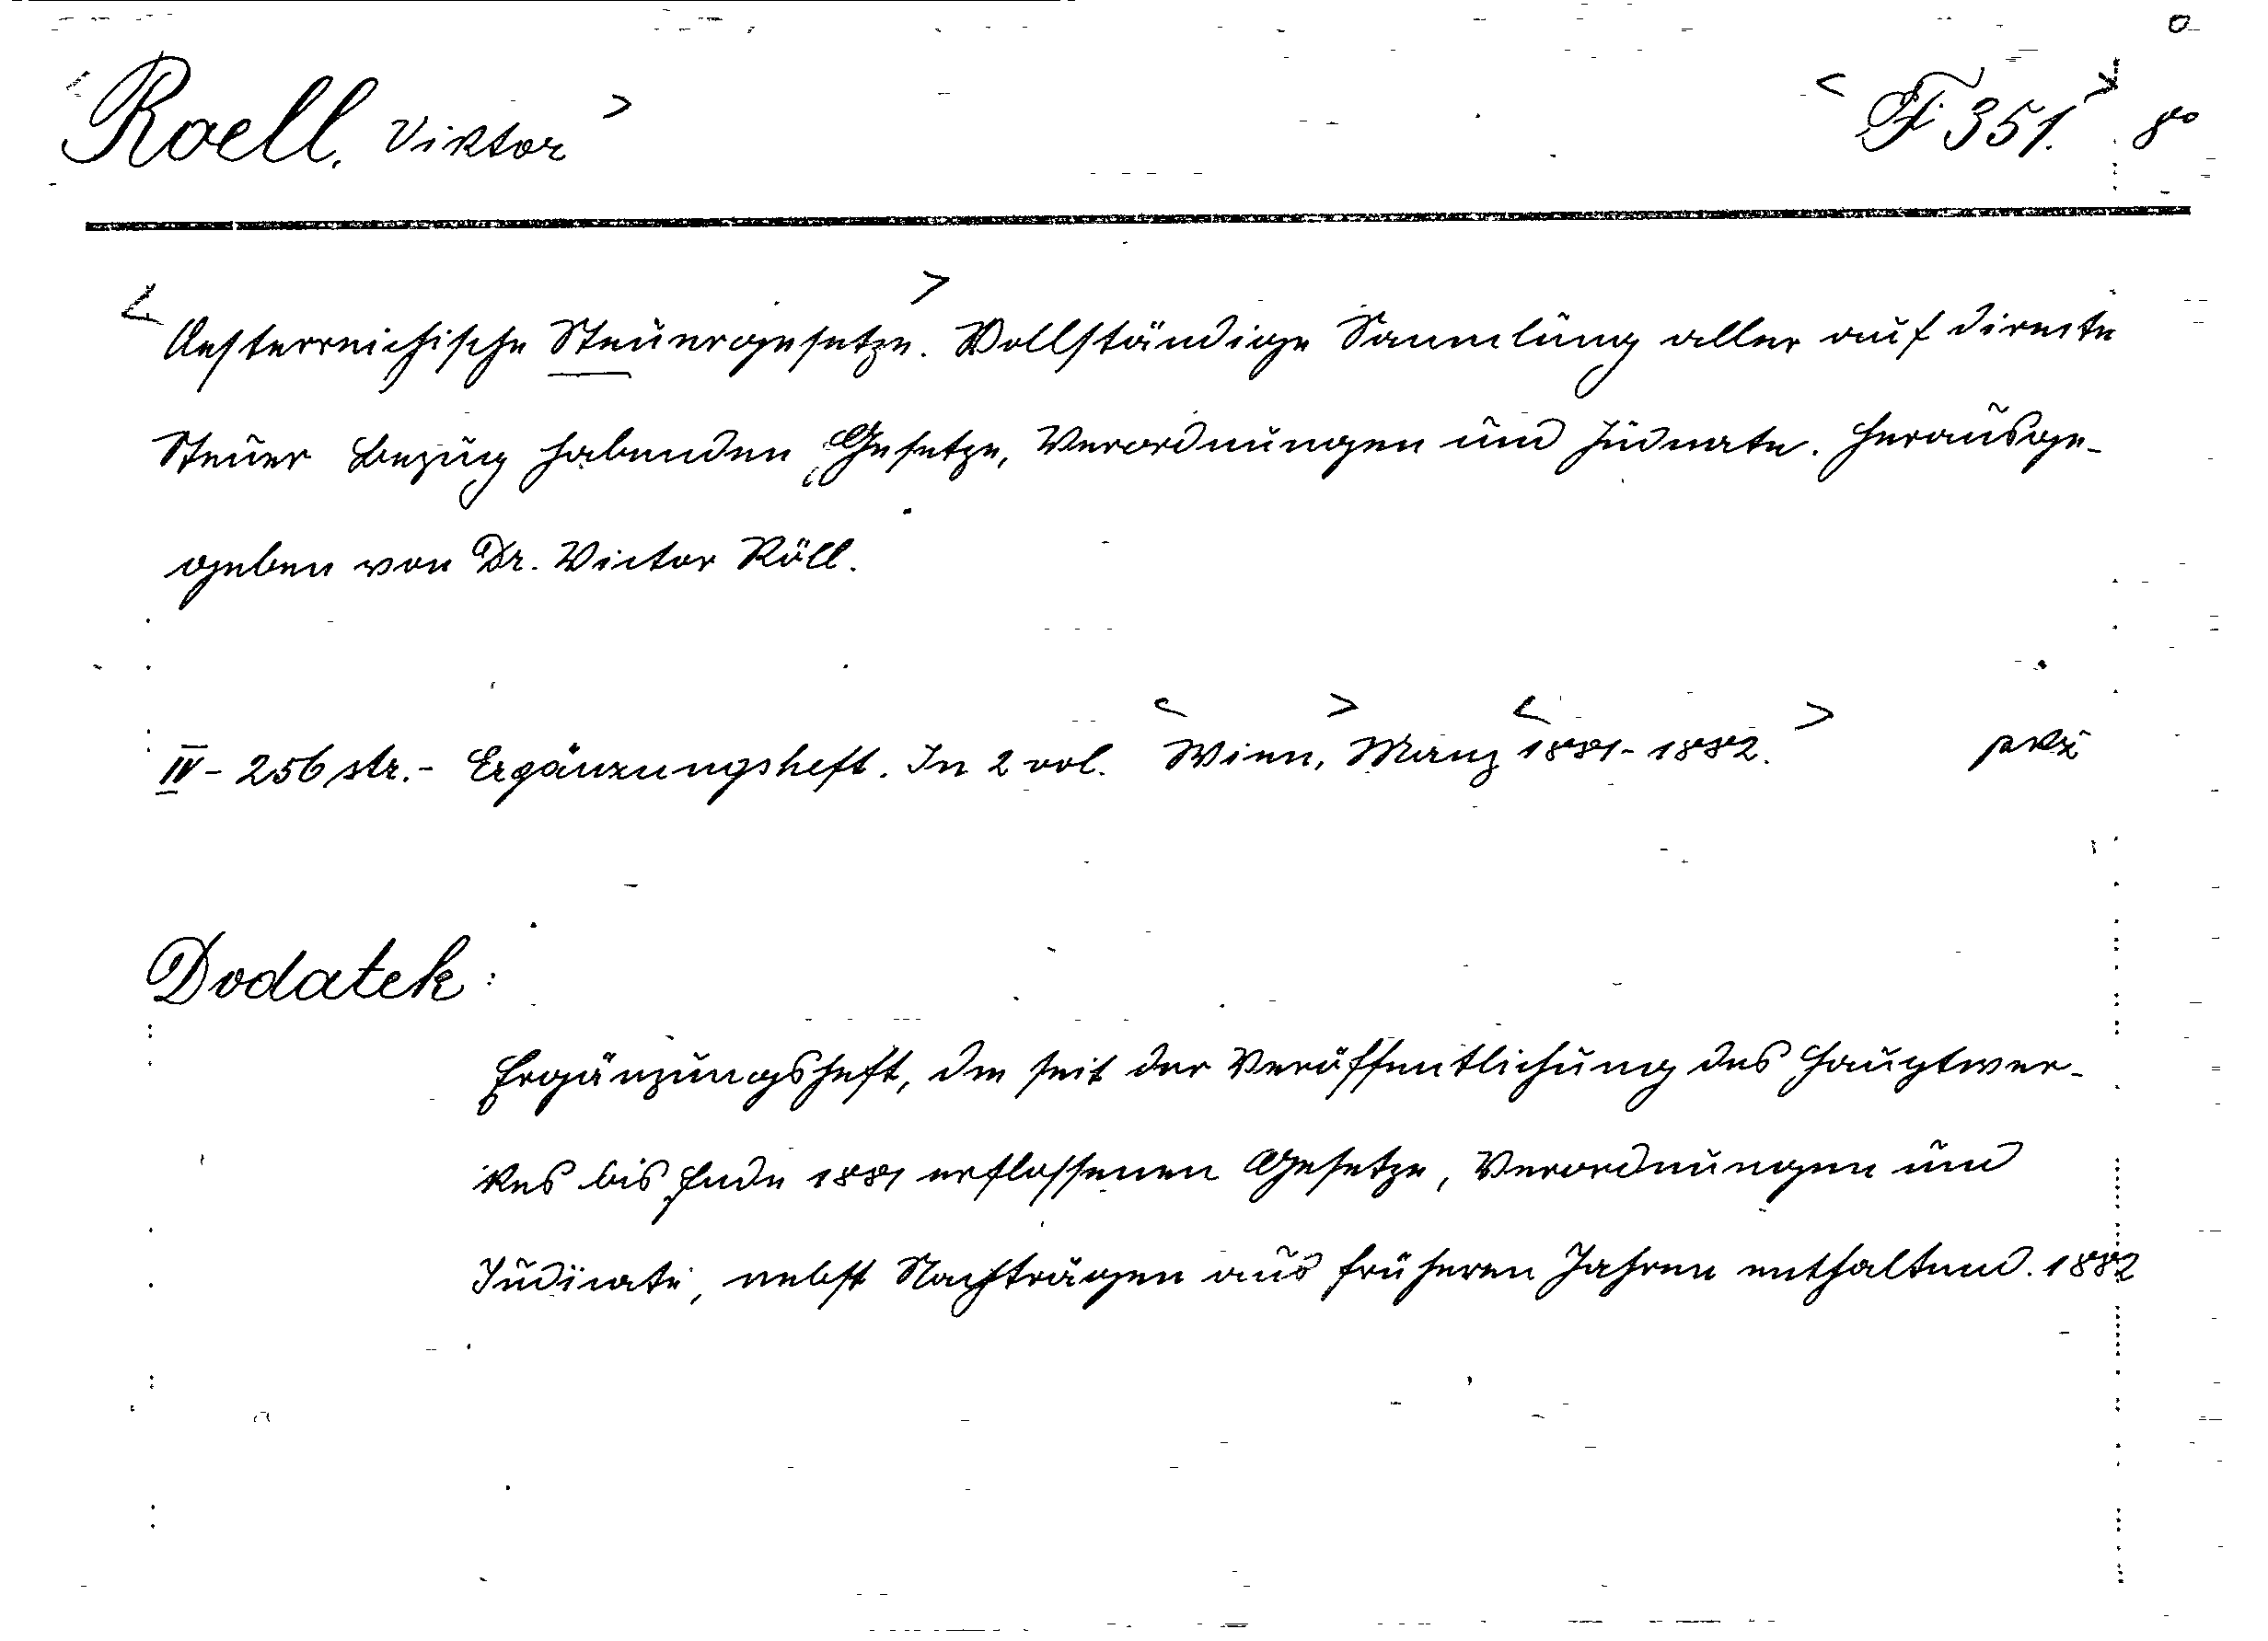 <Roell, Viktor> <F 351.> 8°
<Oesterreichische Steuergesetze.> Vollständige Sammlung aller auf directe
Steuer Bezug habenden Gesetze, Verordnungen und Judicate. Herausge-
geben von Dr. Victor Röll.
IV - 256 str. - Ergänzungsheft. In 2 vol. <Wien,> Manz <1881 - 1882.>
Dodatek:
Ergänzungsheft, die seit der Veröffentlichung des Hauptwer-
kes bis Ende 1881 erflossenen Gesetze, Verordnungen und
Judicate, nebst Nachträgen aus früheren Jahren enthaltend. 1882